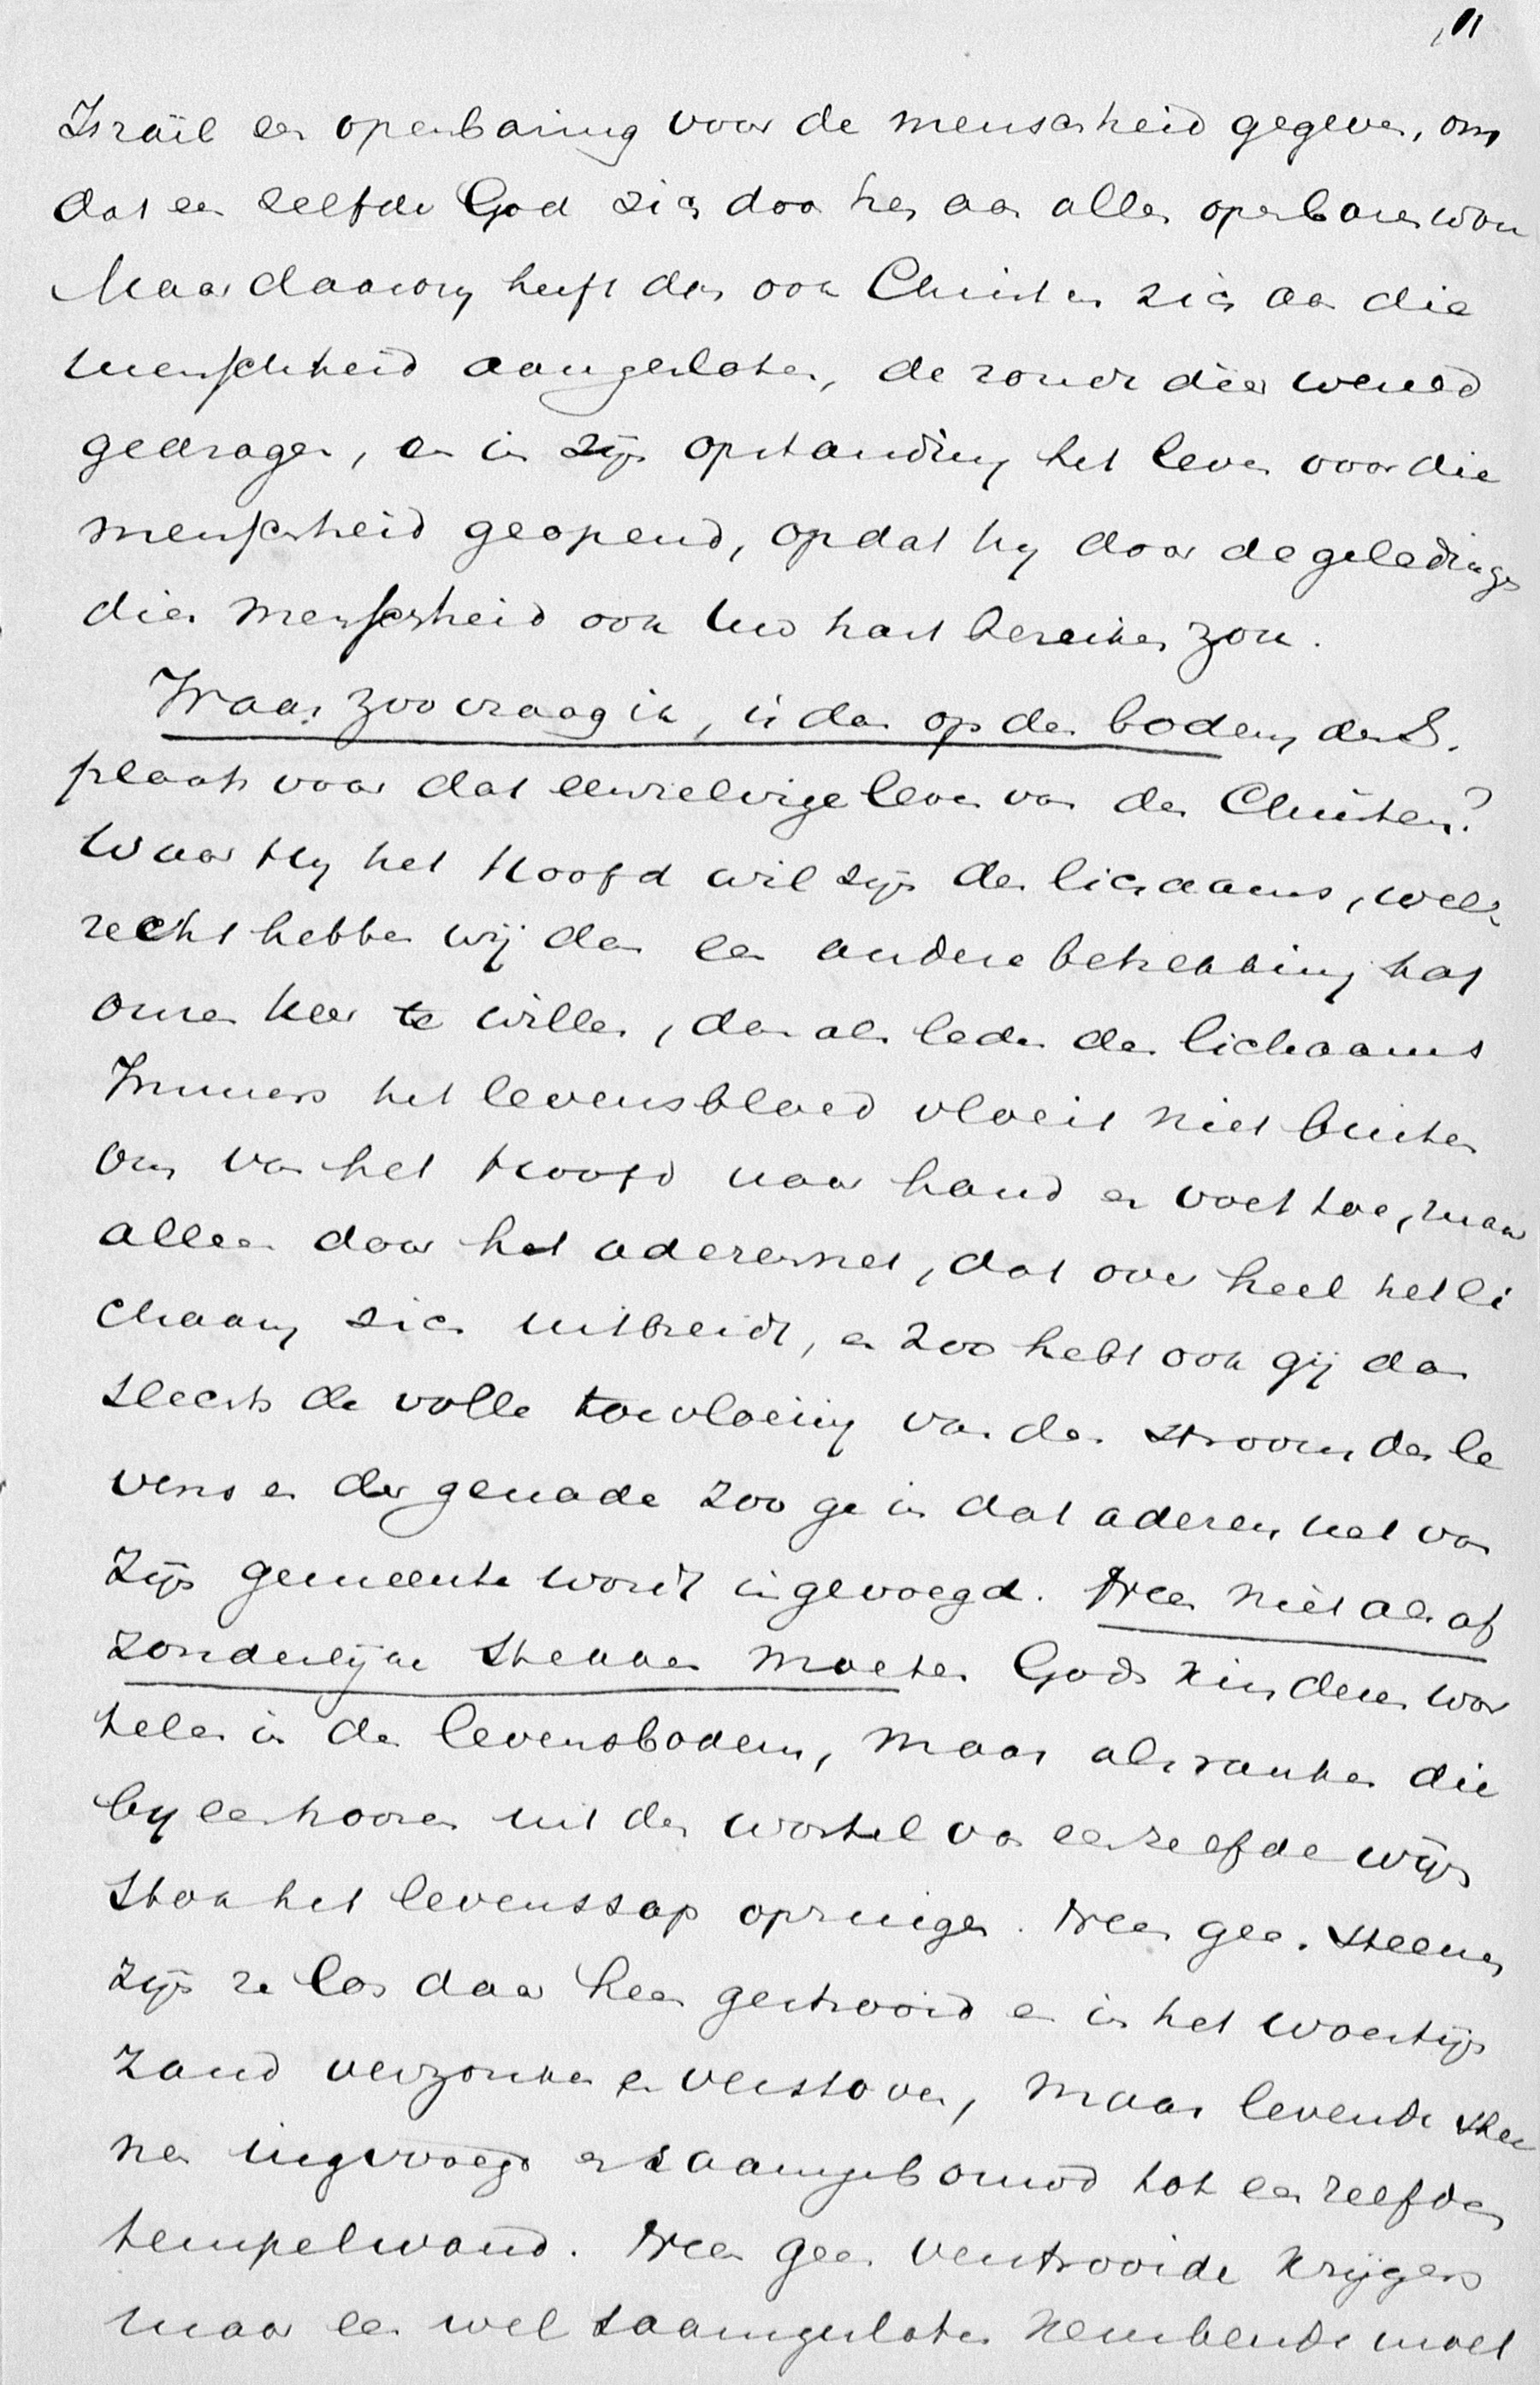 11
Israël een openbaring voor de menschheid gegeven, om
dat een zelfde God zich door hen aan allen openbaren wou
Maar daarom heeft dan ook Christus zich aan die
menschheid aangesloten, de zonde dier wereld
gedragen, en in zijn opstanding het leven voor die
menschheid geopend, opdat hij door de geledingen
dier menschheid ook uw hart bereiken zou.
Waar zoo vraag ik, is dan op den bodem der S.
plaats voor dat eenzelvige leven van den Christen?
Waar Hij het Hoofd wil zijn des lichaams, welk
recht hebben wij dan een andere betrekking tot
onzen Heer te willen, dan als leden des lichaams
Immers het levensbloed vloeit niet buiten
om van het Hoofd naar hand en voet toe, maar
alleen door het aderennet, dat over heel het li
chaam zich uitbreidt, en zoo hebt ook gij dan
slechts de volle toevloeiing van den stroom des le
vens en der genade zoo ge in dat aderennet van
zijn gemeente wordt ingevoegd. Neen niet als af
zonderlijke stekken moeten Gods kinderen wor
telen in den levensbodem, maar als ranken die
bijeenhooren uit den wortel van eenzelfde wijn
stok het levenssap opzuigen. Neen geen steenen
zijn ze los daar heen gestrooid en in het woestijn
zand verzonken en verstoven, maar levende stee
nen ingevoegd en saamgebouwd tot een zelfden
tempelwand. Neen geen verstrooide krijgers
maar een wel saamgesloten keurbende moet